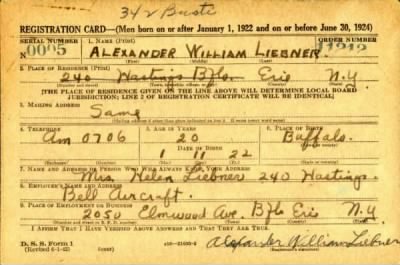 342 Buste
REGISTRATION CARD—(Men born on or after January 1, 1922 and on or before June 30, 1924)
SERIAL NUMBER 1. NAME (Print) ORDER NUMBER
ALEXANDER WILLIAM LIEBNER
(First) (Middle) (Last)
2. PLACE OF RESIDENCE (Print)
240 Hastings Bflo. Erie N.Y.
[THE PLACE OF RESIDENCE GIVEN ON THE LINE ABOVE WILL DETERMINE LOCAL BOARD
JURISDICTION; LINE 2 OF REGISTRATION CERTIFICATE WILL BE IDENTICAL]
3. MAILING ADDRESS
Same
4. TELEPHONE 5. AGE IN YEARS 6. PLACE OF BIRTH
Am 0706 20 Buffalo
1 11 22
7. NAME AND ADDRESS OF PERSON WHO WILL ALWAYS KNOW YOUR ADDRESS
Mrs. Helen Liebner 240 Hastings.
8. EMPLOYER'S NAME AND ADDRESS
Bell Aircraft.
9. PLACE OF EMPLOYMENT OR BUSINESS
2050 Elmwood Ave. Bflo Erie N.Y.
I AFFIRM THAT I HAVE VERIFIED ABOVE ANSWERS AND THAT THEY ARE TRUE.
D. S. S. Form 1
(Revised 6-1-42)
Alexander William Liebner